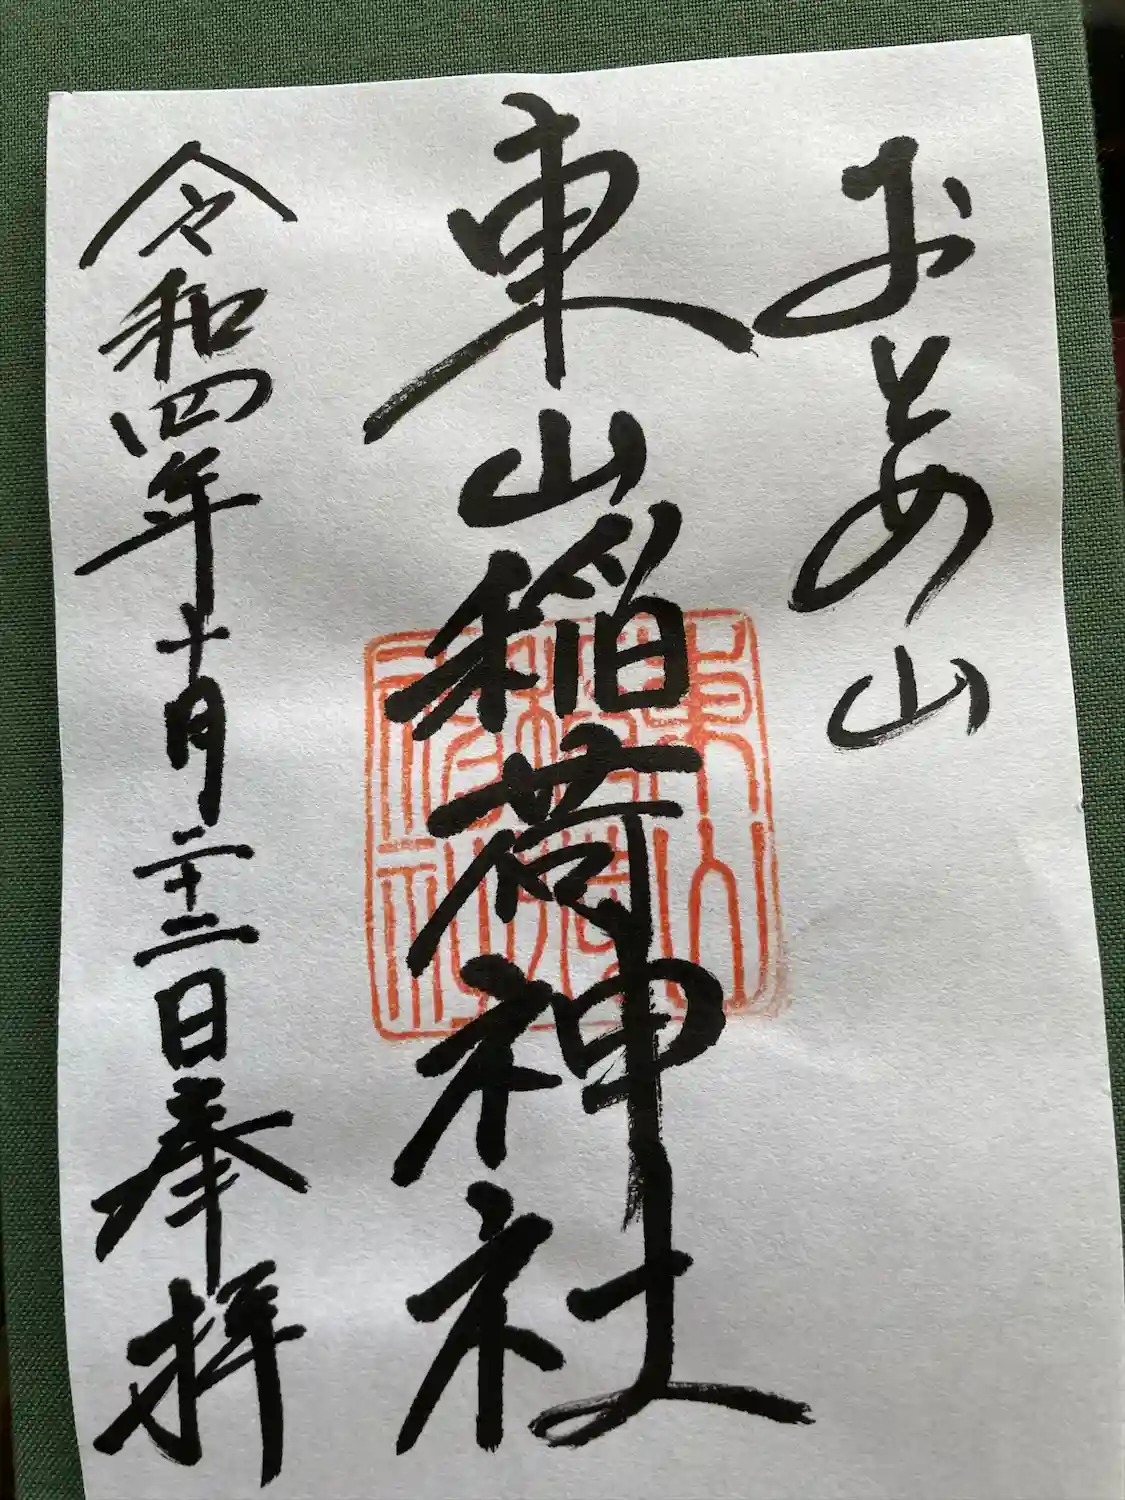 おとめ山
東山稲荷神社
令和四年十月二十二日奉拝